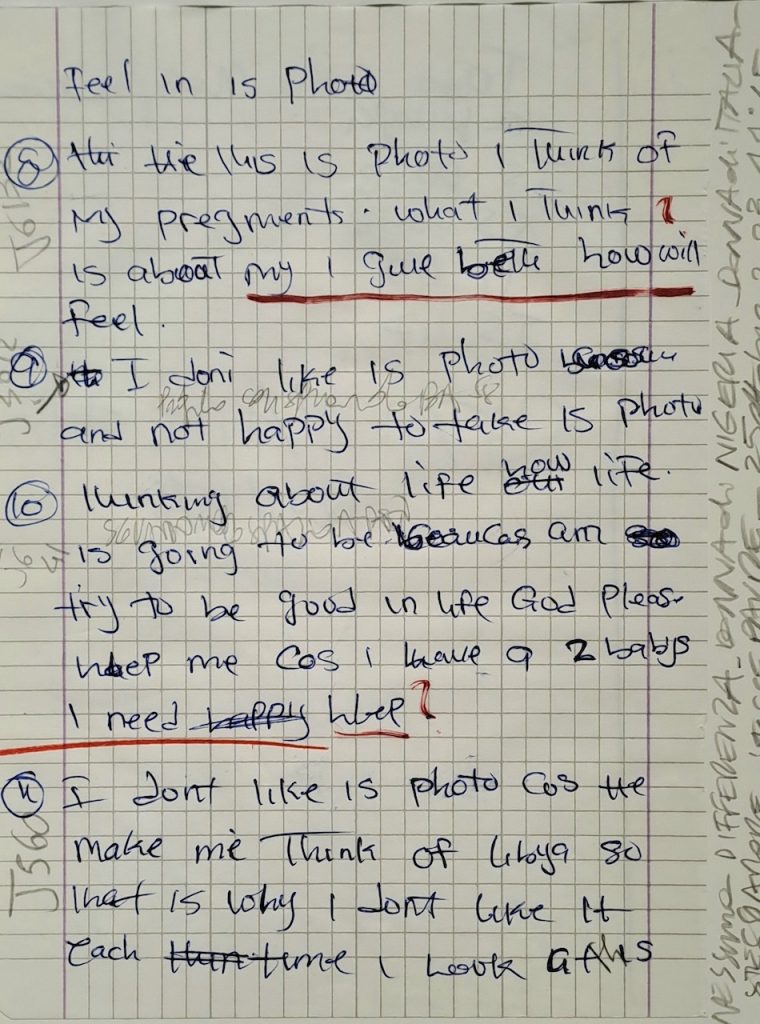 Feel in is photo
8 thi the this is photo I Think of
My pregments. what I Think ?
is about my I give beth how will
feel.
9 I dont like is photo
and not happy to take is photo
10 thinking about life how life.
is going to be Beaucas am
try to be good in life God pleas
hlep me cos I have a 2 babys
I need happy hlep ?
11 I dont like is photo cos the
make me Think of Libya so
that is why I dont like it
Each time I look at this
J560
NESSUNA DIFFERENZA DONNA di NIGERIA DONNA di ITALIA